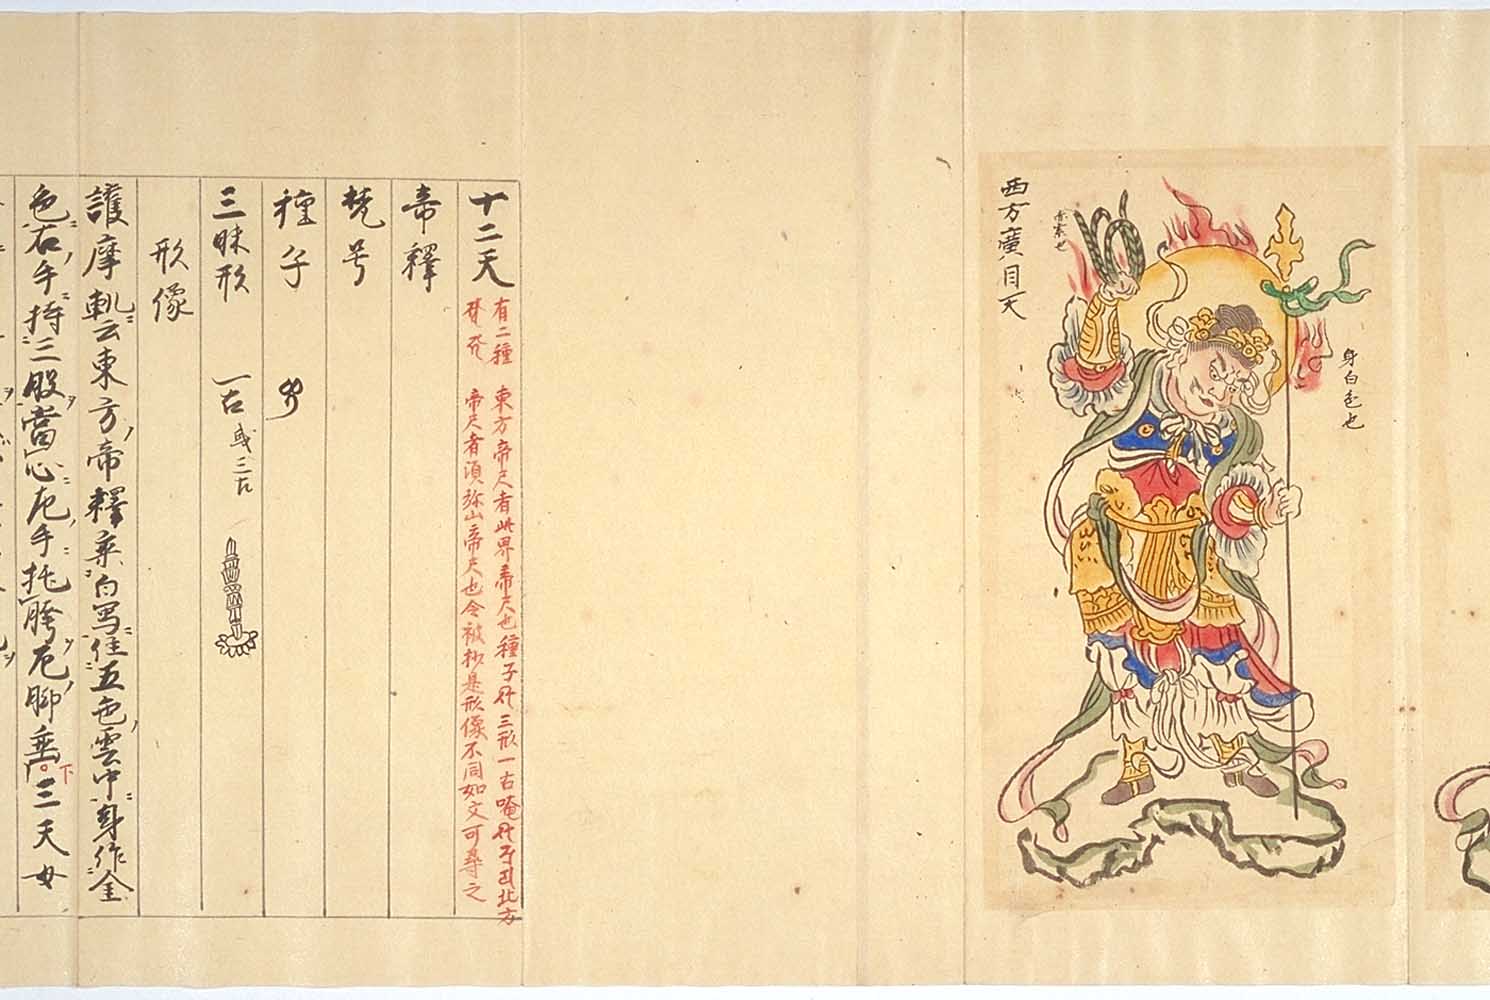 西方廣目天
赤索也
身白色也
十二天
有二種 東方帝尺者此界帝尺也種子 三形一古唵 北方
帝尺者須弥山帝尺也令被抄是形像不同如文可尋之
帝釋
梵号
種子
三昧形 一古 或三古
形像
護摩軌云東方帝釋乗白象住五色雲中身作金
色右手持三股當心左手托胯左脚垂下三天女